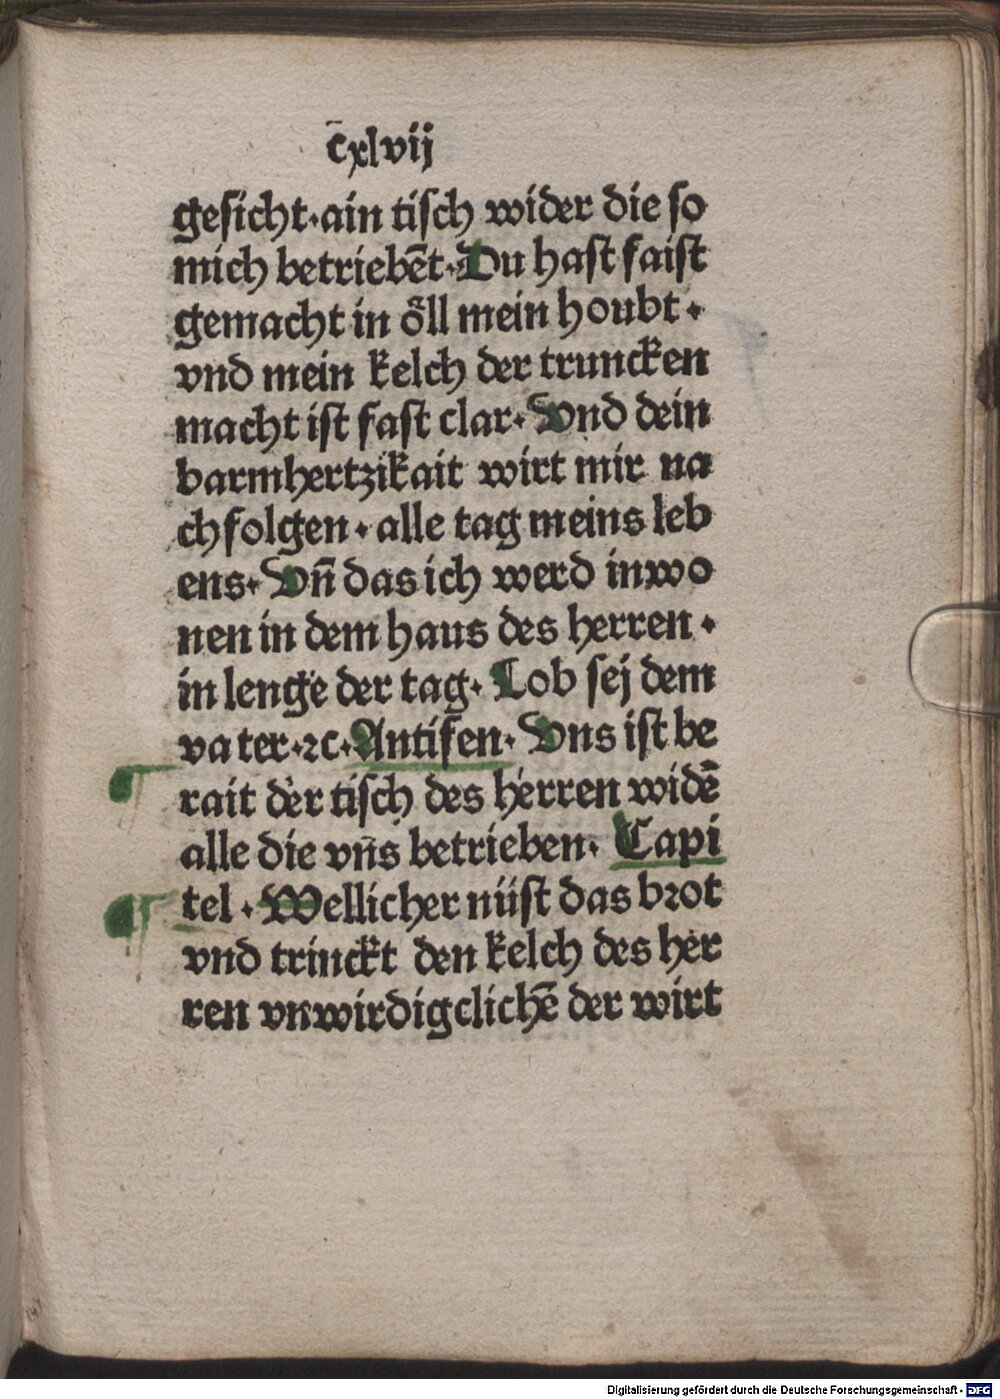 c̄xlvij
gesicht·ain tisch wider die so
mich betriebēt·Du hast faist
gemacht in oͤll mein houbt·
vnd mein kelch der truncken
macht ist fast clar·Vnd dein
barmhertzikait wirt mir na
chfolgen·alle tag meins leb
ens·Vn̄ das ich werd inwo
nen in dem haus des herren·
in lenge der tag·Lob sej dem
va ter·ꝛc·Antifen·Vns ist be
rait der tisch des herren widē
alle die vn̄s betrieben·Capi
tel·Wellicher nüst das brot
vnd trinckt den kelch des her
ren vnwirdigclichē der wirt
147
Digitalisierung gefördert durch die Deutsche Forschungsgemeinschaft - DFG